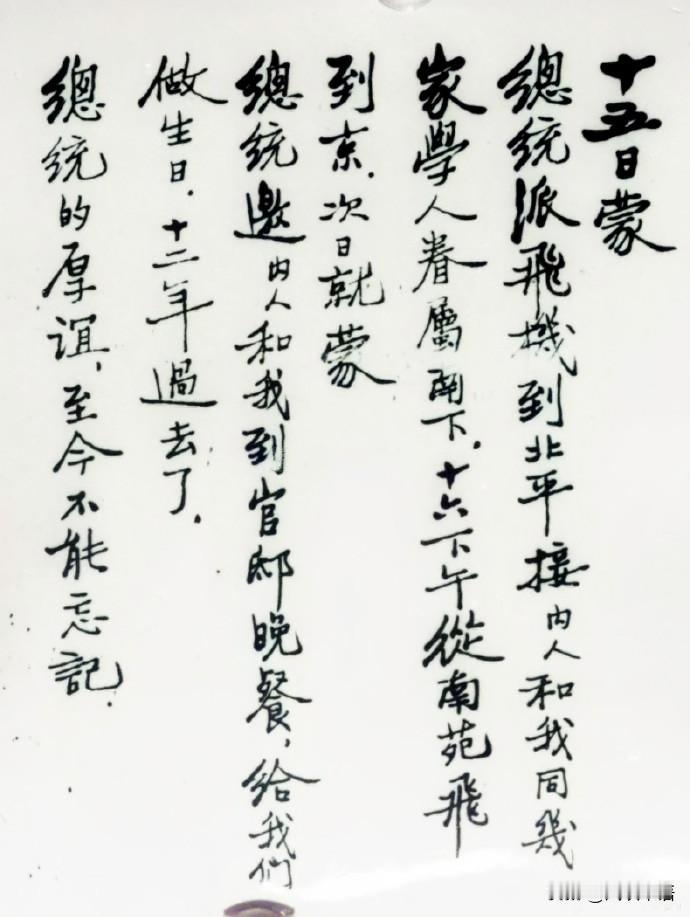 十五日蒙
總統派飛機到北平接内人和我同幾
家學人眷屬南下.十六下午從南苑飛
到京.次日就蒙
總統邀内人和我到官邸晚餐,給我們
做生日.十二年過去了.
總統的厚誼,至今不能忘記.